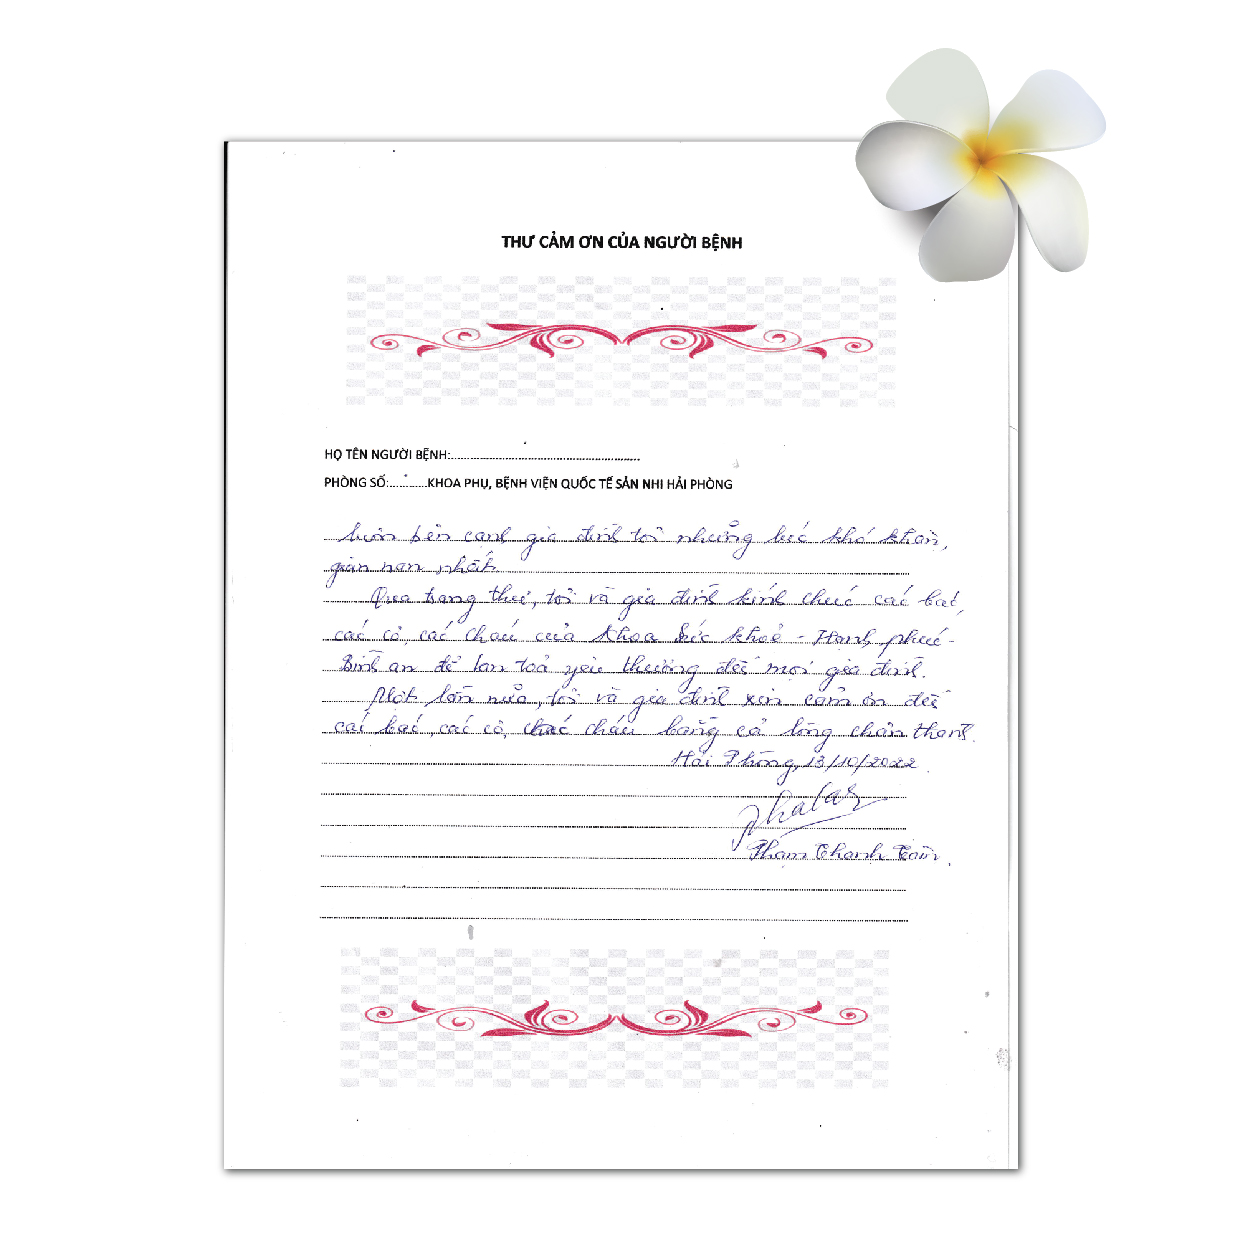 THƯ CẢM ƠN CỦA NGƯỜI BỆNH
HỌ TÊN NGƯỜI BỆNH:
PHÒNG SỐ:............KHOA PHỤ, BỆNH VIỆN QUỐC TẾ SẢN NHI HẢI PHÒNG
luôn bên cạnh gia đình tôi những lúc khó khăn,
gian nan nhất.
Qua trang thư, tôi và gia đình kính chúc các bác,
các cô, các cháu của khoa sức khoẻ - Hạnh phúc -
Bình an để lan toả yêu thương đến mọi gia đình.
Một lần nữa, tôi và gia đình xin cảm ơn đến
các bác, các cô, các cháu bằng cả lòng chân thành.
Hải Phòng, 13/10/2022
Phạm Thanh